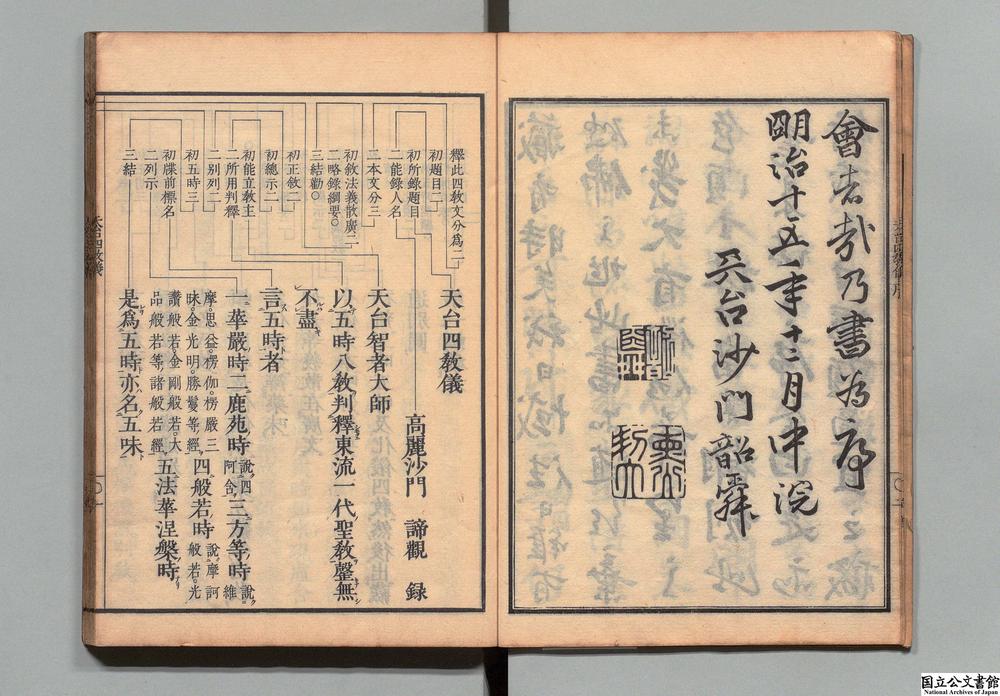 會者哉乃書爲序
明治十五年十二月中浣
天台沙門韶舜
釋此四教文分爲二
初題目二
初所録題目
二能録人名
二本文分三
初敘法義散廣二
二略録綱要〇
三結勸〇
初正敘二
初總示二
初能立教主
二所用判釋
二別列二
初五時三
初牒前標名
二列示
三結
天台四教儀
高麗沙門 諦觀 録
天台智者大師
以五時八教判釋東流一代聖教罄無
不盡
言五時者
一華嚴時二鹿苑時説四阿含三方等時説維
摩。思益。楞伽。楞嚴三昧。金光明。勝鬘等經四般若時説摩訶般若。光
讚般若。金剛般若。大品般若等。諸般若經五法華涅槃時
是爲五時亦名五味
天台四教儀
国立公文書館
National Archives of Japan